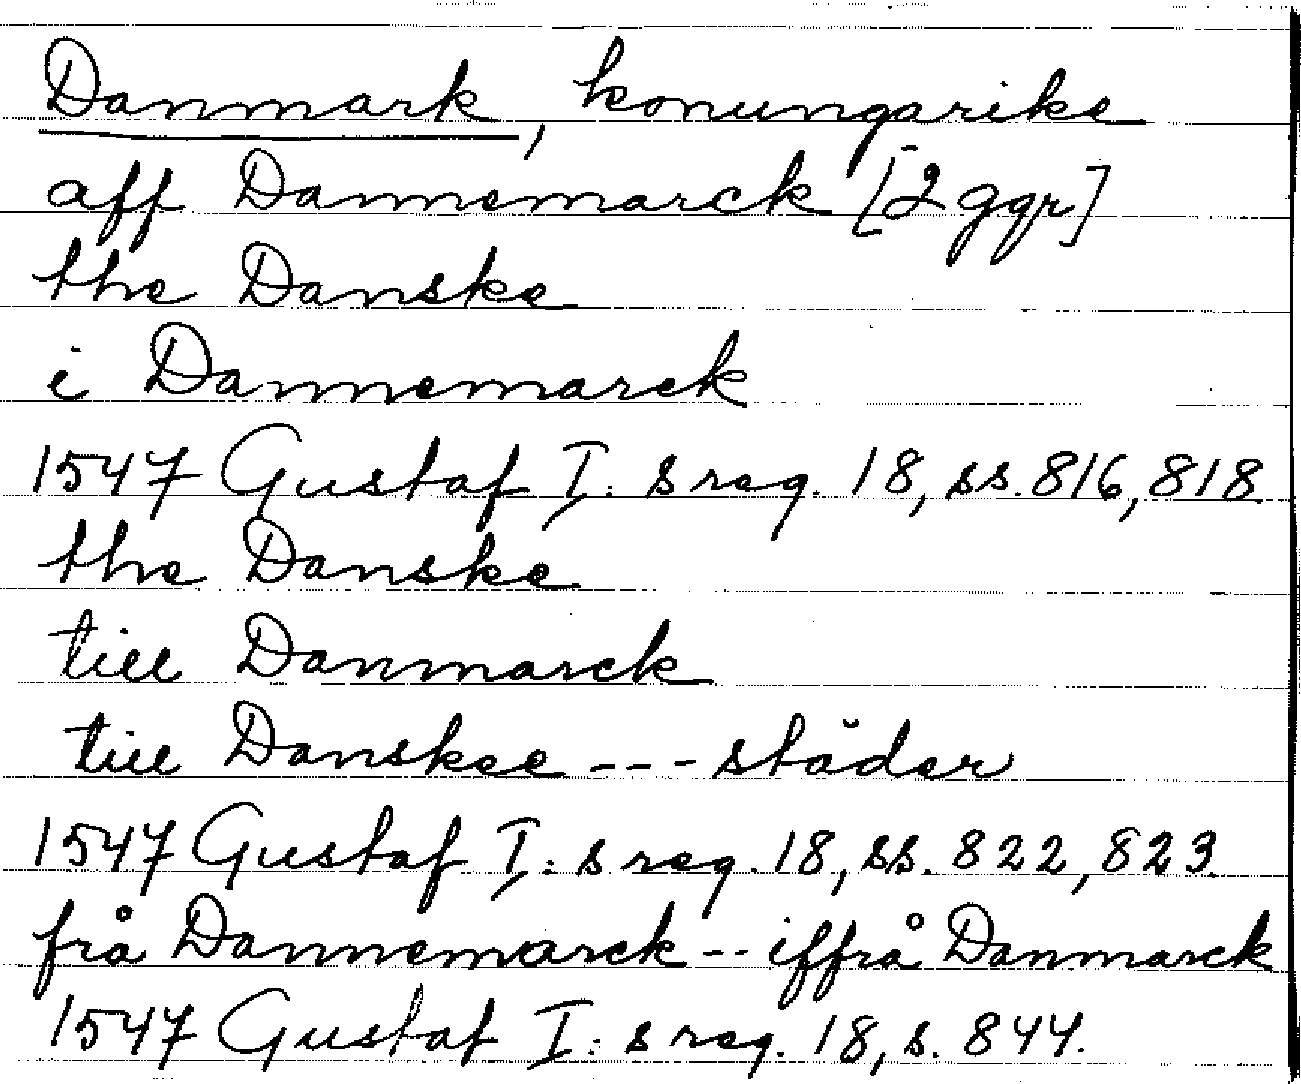 Danmark, konungarike
aff Dannemarck [2 ggr]
the Danske
i Dannemarck
1547 Gustaf I: s reg. 18, ss. 816, 818.
the Danske
till Danmarck
till Danskee --- städer
1547 Gustaf I: s reg. 18, ss. 822, 823.
frå Dannemarck -- iffrå Danmarck
1547 Gustaf I: s reg. 18, s. 844.